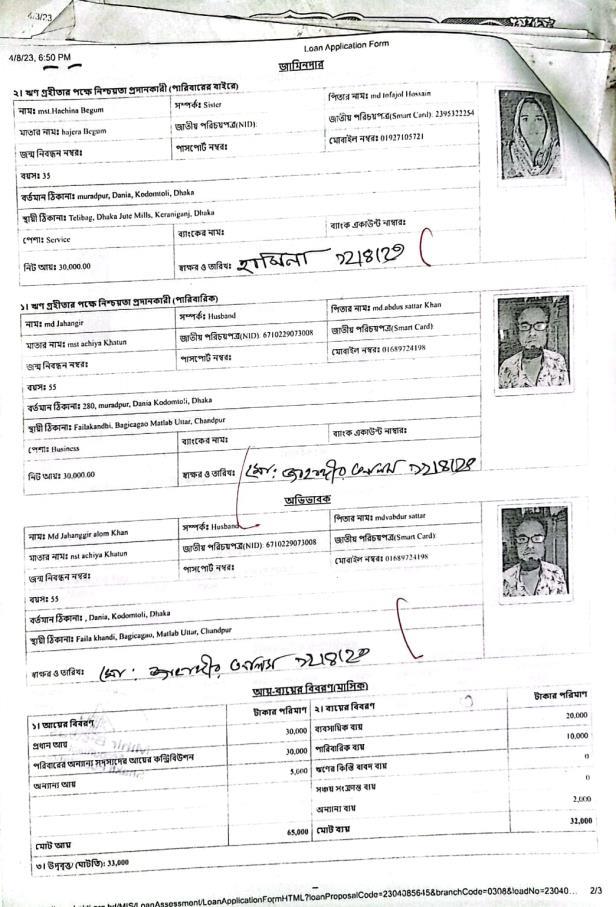 4/3/23
4/8/23, 6:50 PM
Loan Application Form
জামিনদার
২। ঋণ গ্রহীতার পক্ষে নিশ্চয়তা প্রদানকারী (পারিবারের বাইরে)
নামঃ mst.Hachina Begum সম্পর্কঃ Sister পিতার নামঃ md tofajol Hossain
মাতার নামঃ hajera Begum জাতীয় পরিচয়পত্র(NID): জাতীয় পরিচয়পত্র(Smart Card): 2395322254
জন্ম নিবন্ধন নম্বরঃ পাসপোর্ট নম্বরঃ মোবাইল নম্বরঃ 01927105721
বয়সঃ 35
বর্তমান ঠিকানাঃ muradpur, Dania, Kodomtoli, Dhaka
স্থায়ী ঠিকানাঃ Telibag, Dhaka Jute Mills, Keraniganj, Dhaka
পেশাঃ Service ব্যাংকের নামঃ ব্যাংক একাউন্ট নাম্বারঃ
নিট আয়ঃ 30,000.00 স্বাক্ষর ও তারিখঃ
১। ঋণ গ্রহীতার পক্ষে নিশ্চয়তা প্রদানকারী (পারিবারিক)
নামঃ md Jahangir সম্পর্কঃ Husband পিতার নামঃ md.abdus sattar Khan
মাতার নামঃ mst achiya Khatun জাতীয় পরিচয়পত্র(NID): 6710229073008 জাতীয় পরিচয়পত্র(Smart Card):
জন্ম নিবন্ধন নম্বরঃ পাসপোর্ট নম্বরঃ মোবাইল নম্বরঃ 01689724198
বয়সঃ 55
বর্তমান ঠিকানাঃ 280, muradpur, Dania Kodomtoli, Dhaka
স্থায়ী ঠিকানাঃ Failakandhi, Bagicagao Matlab Uttar, Chandpur
পেশাঃ Business ব্যাংকের নামঃ ব্যাংক একাউন্ট নাম্বারঃ
নিট আয়ঃ 30,000.00 স্বাক্ষর ও তারিখঃ মোঃ জাহাঙ্গীর আলম
অভিভাবক
নামঃ Md Jahanggir alom Khan সম্পর্কঃ Husband পিতার নামঃ mdvabdur sattar
মাতার নামঃ nst achiya Khatun জাতীয় পরিচয়পত্র(NID): 6710229073008 জাতীয় পরিচয়পত্র(Smart Card):
জন্ম নিবন্ধন নম্বরঃ পাসপোর্ট নম্বরঃ মোবাইল নম্বরঃ 01689724198
বয়সঃ 55
বর্তমান ঠিকানাঃ , Dania, Kodomtoli, Dhaka
স্থায়ী ঠিকানাঃ Faila khandi, Bagicagao, Matlab Uttar, Chandpur
স্বাক্ষর ও তারিখঃ মোঃ জাহাঙ্গীর আলম
আয়-ব্যয়ের বিবরণ(মাসিক)
১। আয়ের বিবরণ টাকার পরিমাণ ২। ব্যয়ের বিবরণ টাকার পরিমাণ
প্রধান আয় 30,000 ব্যবসায়িক ব্যয় 20,000
পরিবারের অন্যান্য সদস্যদের আয়ের কন্ট্রিবিউশন 30,000 পারিবারিক ব্যয় 10,000
অন্যান্য আয় 5,000 ঋণের কিস্তি বাবদ ব্যয় 0
সঞ্চয় সংক্রান্ত ব্যয় 0
অন্যান্য ব্যয় 2,000
মোট আয় 65,000 মোট ব্যয় 32,000
৩। উদ্বৃত্ত/ (ঘাটতি): 33,000
/MIS/LoanAssessment/LoanApplicationFormHTML?loanProposalCode=2304085645&branchCode=0308&loadNo=23040... 2/3